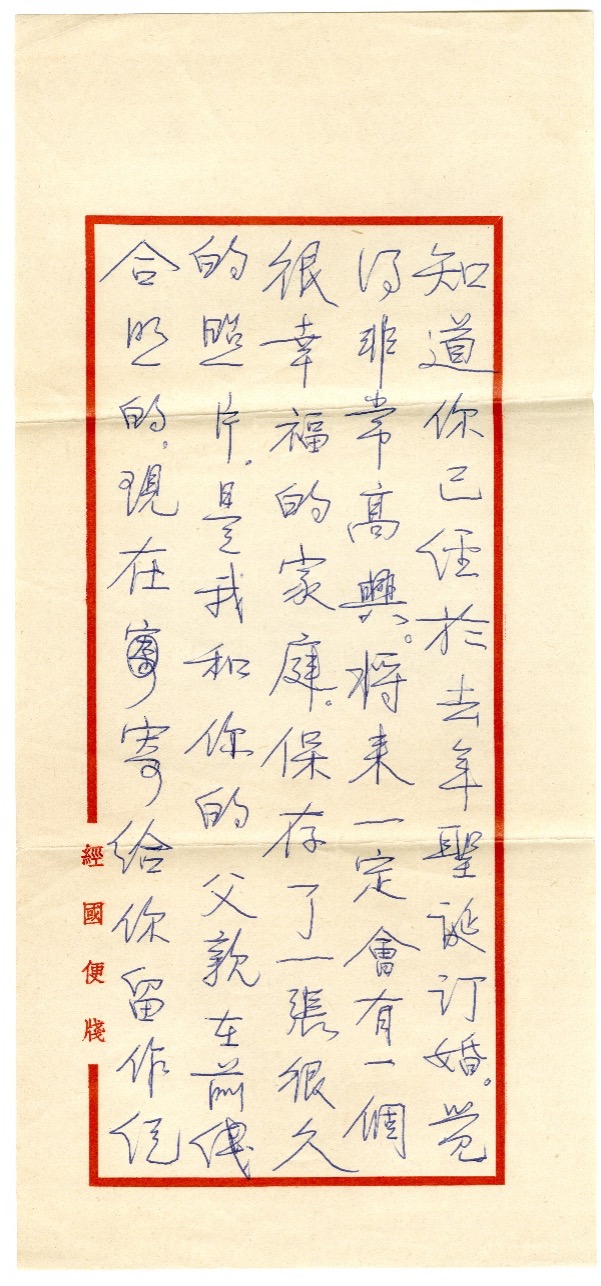 知道你已經於去年聖誕訂婚。覺
得非常高興。將來一定會有一個
很幸福的家庭。保存了一張很久
的照片。是我和你的父親在前線
合照的。現在寄給你留作紀
經國便牋